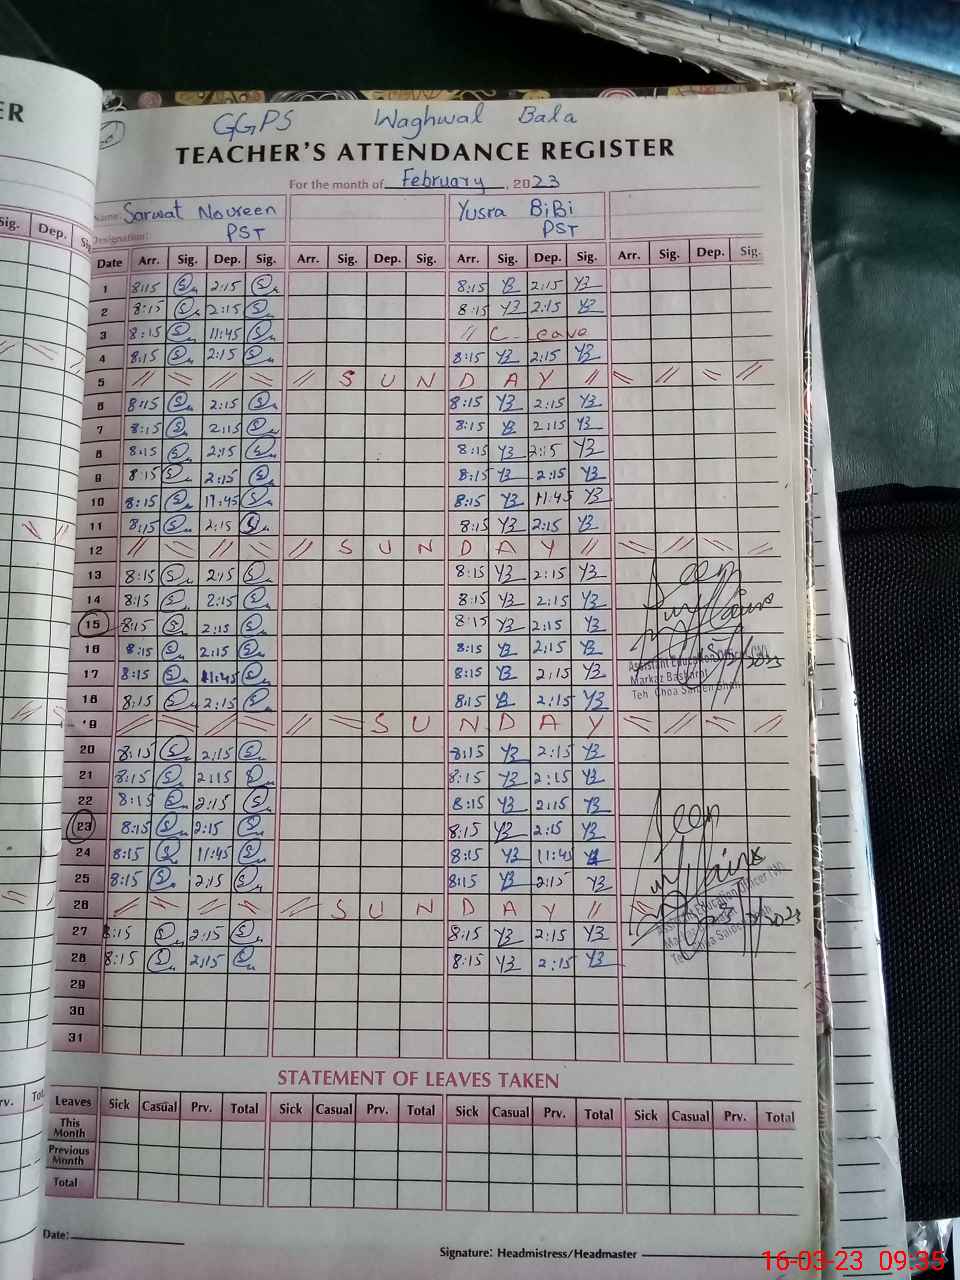 ER
GGPS Waghwal Bala
TEACHER'S ATTENDANCE REGISTER
For the month of February, 2023
Name: Sarwat Noureen Yusra BiBi
Designation: PST PST
Sig. Dep. Date Arr. Sig. Dep. Sig. Arr. Sig. Dep. Sig. Arr. Sig. Dep. Sig. Arr. Sig. Dep. Sig.
1 8:15 2:15 8:15 YB 2:15 YB
2 8:15 2:15 8:15 YB 2:15 YB
3 8:15 11:45 // C-Leave
4 8:15 2:15 8:15 YB 2:15 YB
5 // // // // // S U N D A Y // // // // //
6 8:15 2:15 8:15 YB 2:15 YB
7 8:15 2:15 8:15 YB 2:15 YB
8 8:15 2:15 8:15 YB 2:15 YB
9 8:15 2:15 8:15 YB 2:15 YB
10 8:15 11:45 8:15 YB 11:45 YB
11 8:15 2:15 8:15 YB 2:15 YB
12 // // // // // S U N D A Y // // // // //
13 8:15 2:15 8:15 YB 2:15 YB
14 8:15 2:15 8:15 YB 2:15 YB
15 8:15 2:15 8:15 YB 2:15 YB
16 8:15 2:15 8:15 YB 2:15 YB
17 8:15 11:45 8:15 YB 2:15 YB
18 8:15 2:15 8:15 YB 2:15 YB
Seen
Assistant Education Officer (W)
Markaz Basharat
Teh Choa Saiden Shah
19 // // // // // // S U N D A Y // // // //
20 8:15 2:15 8:15 YB 2:15 YB
21 8:15 2:15 8:15 YB 2:15 YB
22 8:15 2:15 8:15 YB 2:15 YB
23 8:15 2:15 8:15 YB 2:15 YB
24 8:15 11:45 8:15 YB 11:45 YB
25 8:15 2:15 8:15 YB 2:15 YB
26 // // // // // S U N D A Y // //
27 8:15 2:15 8:15 YB 2:15 YB
28 8:15 2:15 8:15 YB 2:15 YB
Seen
Assistant Education Officer (W)
Teh Choa Saiden Shah
29
30
31
STATEMENT OF LEAVES TAKEN
Leaves Sick Casual Prv. Total Sick Casual Prv. Total Sick Casual Prv. Total Sick Casual Prv. Total
This Month
Previous Month
Total
Date:
Signature: Headmistress/Headmaster
16-03-23 09:35